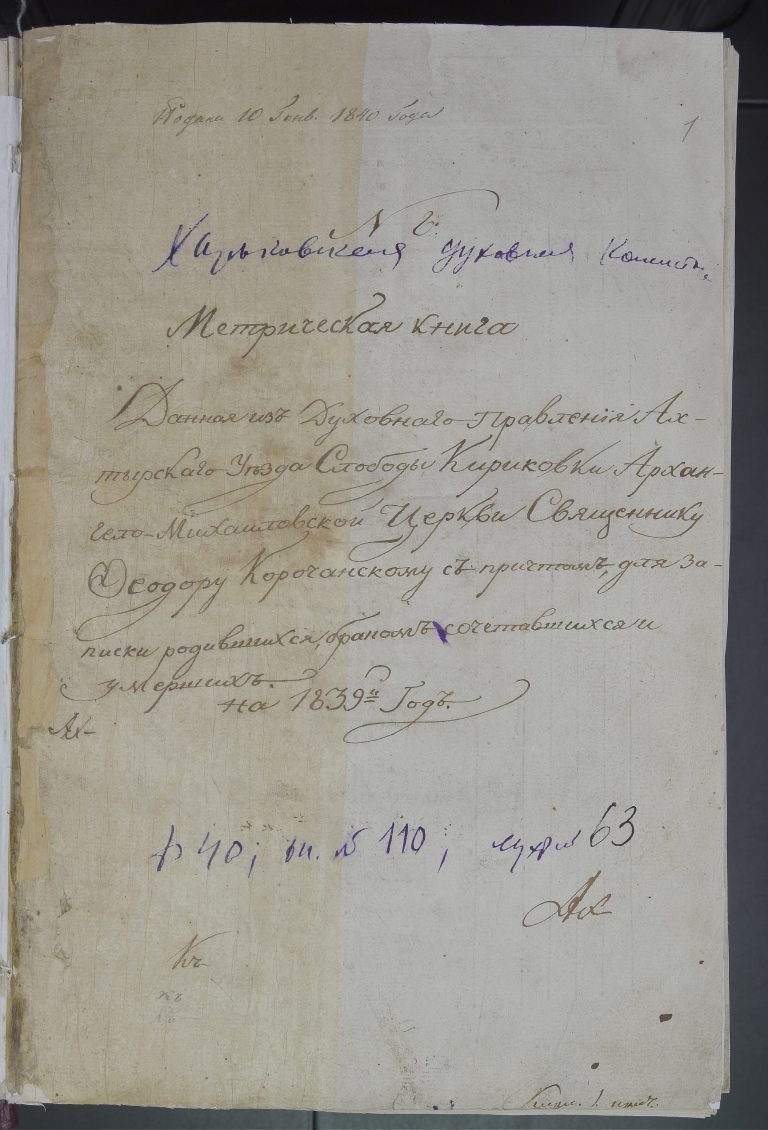 Подана 10 Генв. 1840 Года
1
Харьковская духовная Консист.
Метрическая книга
Данная изъ Духовнаго Правленія Ах-
тырскаго Уѣзда Слободы Кириковки Архан-
гело-Михайловской Церкви Священнику
Ѳеодору Корочанскому съ причтомъ, для за-
писки родившихся, бракомъ сочетавшихся и
умершихъ.
на 1839й Годъ.
Ах-
ф 40; оп. № 110, связ. № 63
Ах
Къ
къ